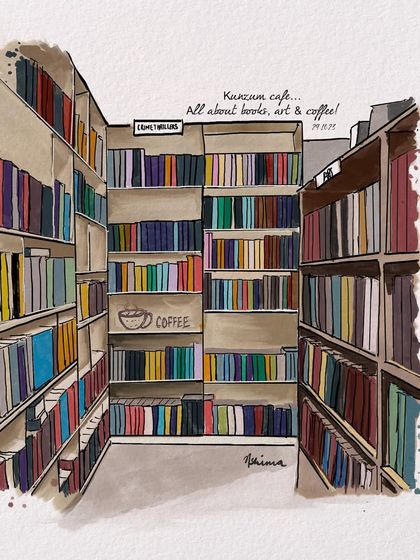 Kunzum cafe...
All about books, art & coffee!
29.10.23
CRIME THRILLERS
ART
COFFEE
Nshima